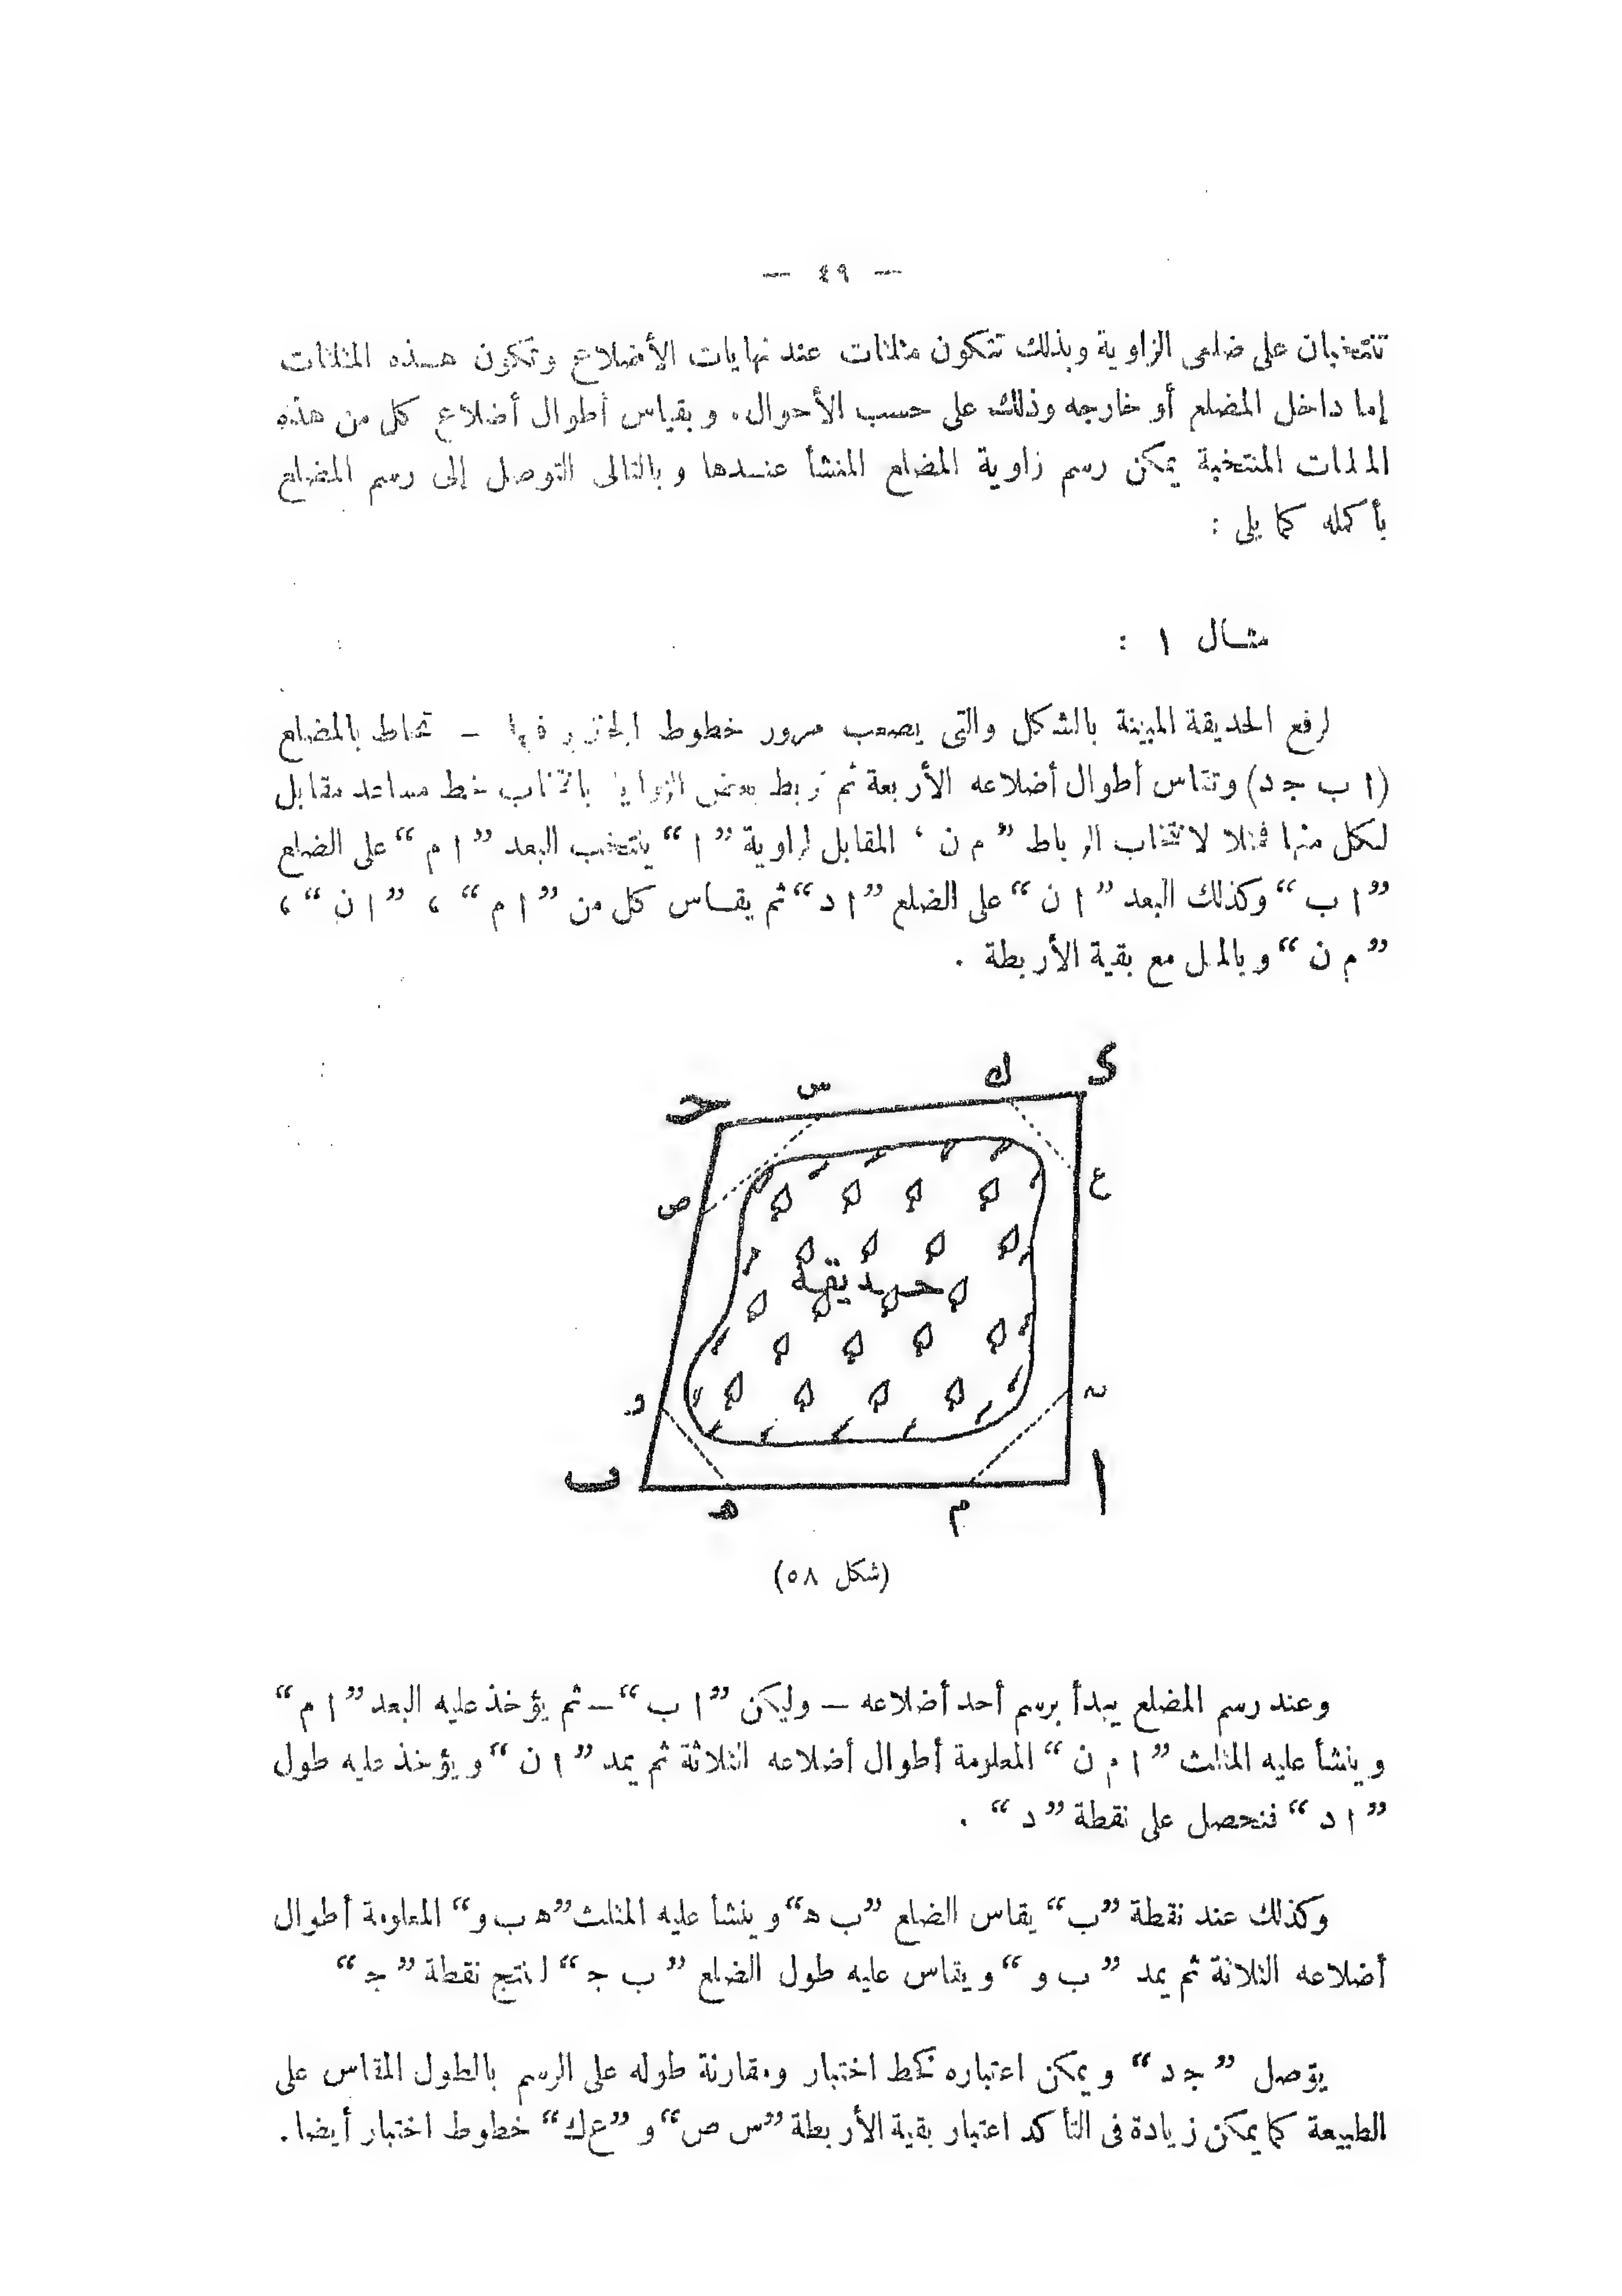 — ٤٩ —
تنتخبان على ضلعى الزاوية وبذلك تتكون مثلثات عند نهايات الأضلاع وتكون هذه المثلثات
إما داخل المضلع أو خارجه وذلك على حسب الأحوال. وبقياس أطوال أضلاع كل من هذه
المنتخبة يمكن رسم زاوية المضلع المنشأ عندها وبالتالى التوصل إلى رسم المضلع
بأكمله كما يلى :
مثال ١ :
لرفع الحديقة المبينة بالشكل والتى يصعب مرور خطوط الجنزير فيها — تحاط بالمضلع
(ا ب ج د) وتقاس أطوال أضلاعه الأربعة ثم تربط بعض الزوايا بانتخاب خط مساعد مقابل
لكل منها فمثلا لانتخاب الرباط ”م ن“ المقابل لزاوية ”ا“ ينتخب البعد ”ا م“ على الضلع
”ا ب“ وكذلك البعد ”ا ن“ على الضلع ”ا د“ ثم يقاس كل من ”ا م“ ، ”ا ن“ ،
”م ن“ وبالمثل مع بقية الأربطة .
د
ك
س
ح
ع
ص
حديقة
و
ن
ب
ا
ه
م
(شكل ٥٨)
وعند رسم المضلع يبدأ برسم أحد أضلاعه — وليكن ”ا ب“ — ثم يؤخذ عليه البعد ”ا م“
وينشأ عليه المثلث ”ا م ن“ المعلومة أطوال أضلاعه الثلاثة ثم يمد ”ا ن“ ويؤخذ عليه طول
”ا د“ فنحصل على نقطة ”د“ .
وكذلك عند نقطة ”ب“ يقاس الضلع ”ب ه“ وينشأ عليه المثلث ”ه ب و“ المعلومة أطوال
أضلاعه الثلاثة ثم يمد ”ب و“ ويقاس عليه طول الضلع ”ب ج“ لنتج نقطة ”ج“
يوصل ”ج د“ ويمكن اعتباره كخط اختبار ومقارنة طوله على الرسم بالطول المقاس على
الطبيعة كما يمكن زيادة فى التأكد اعتبار بقية الأربطة ”س ص“ و ”ع ك“ خطوط اختبار أيضا.